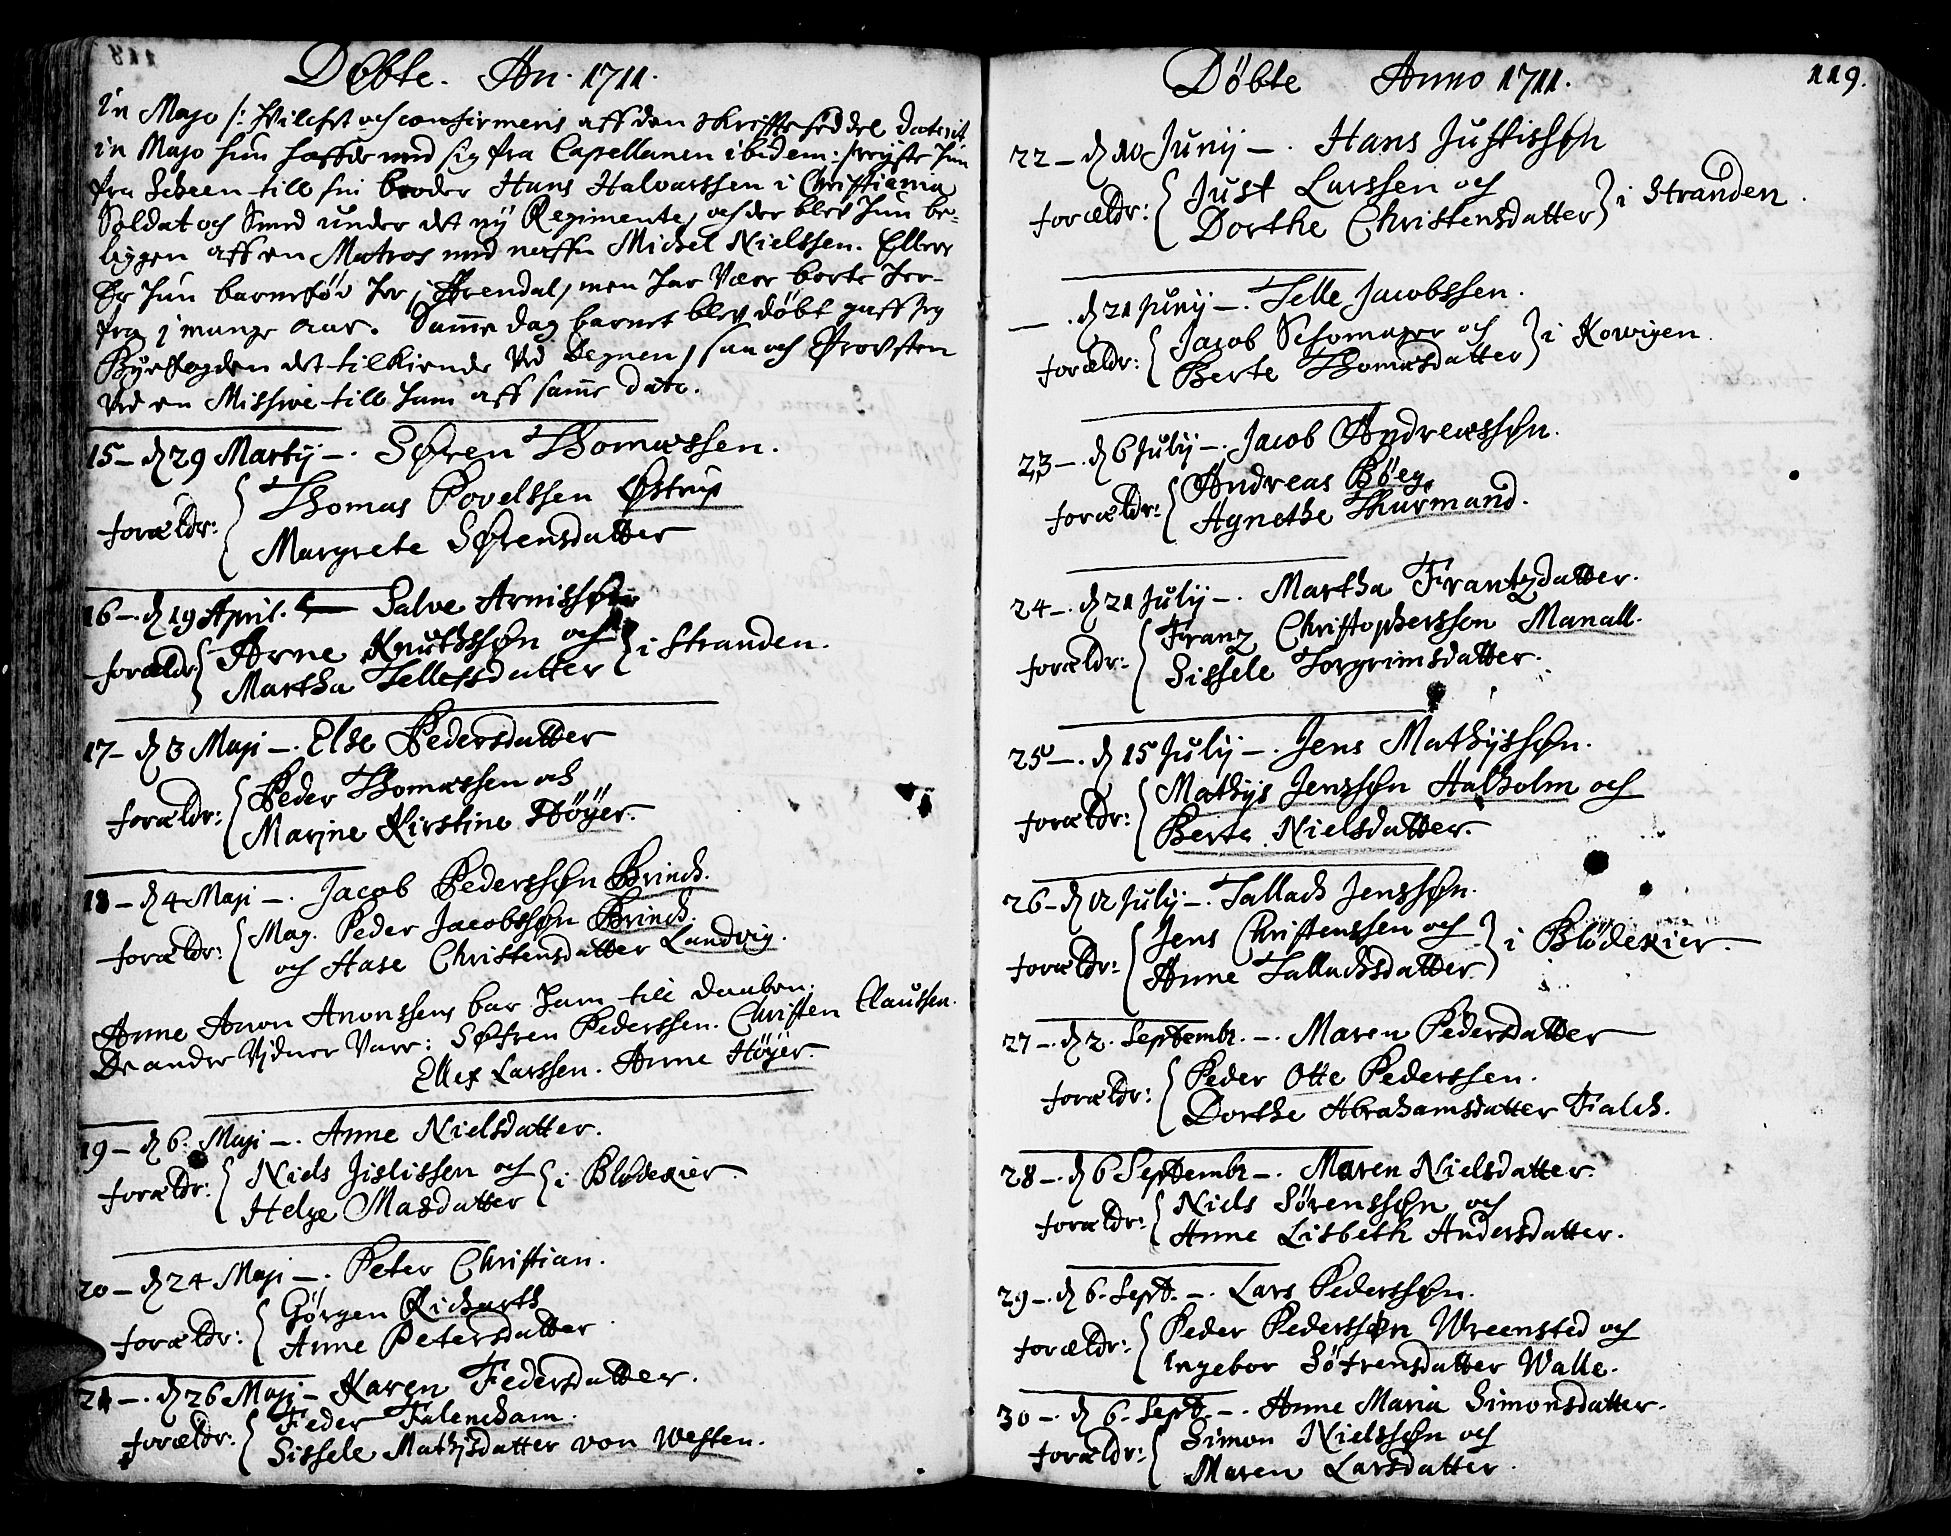 Døbte. An. 1711.
in Majo /: hvilchet och confirmeris aff den skriffte seddel daterit
in Majo hun haffde med sig fra Capellanen ibidem :/ reyste hun
fra Scheen till sin broder Hans Halvorssen i Christiania
Soldat och Smed under det ny Regimente, och der blev hun be-
liggen aff en Matros med naffn Michel Nielssen. Ellers
Er hun barnefød her i Arendal, men har være borte her-
fra i mange aar. Samme dag barnet blev døbt gaff jeg
Byefogden det tilkiende ved Degnen, saa och Provsten
ved en Missive till ham aff samme dato.
15 – d 29 Martij –. Søren Thomæssen.
forældr: Thomas Povelssen Østrup
Margrete Sørensdatter
16 –. d 19 April. – Salve Arnissøn
forældr Arne Knutssøn och
Martha Tellefsdatter i Stranden.
17 – d 3 Maji –. Else Pedersdatter
forældr: Peder Thomæssen och
Marjne Kirstine Høyer.
18 – d 4 Maji –. Jacob Pederssøn Brinch.
forældr: Mag. Peder Jacobssøn Brinch.
och Hase Christensdatter Landvig.
Anne Anon Anonssens bar ham till daaben.
De andre Vidner Vare: Søfren Pederssen. Christen Claussen.
Ellef Larssen. Anne Høyer.
19 – d 6. Maji –. Anne Nielsdatter.
forældr: Niels Jislissen och
Helge Masdatter i Blødekier.
20 – d 24 Maji –. Peter Christian.
forældr: Gørgen Richarth
Anne Petersdatter
21 –. d 26 Maji – Karen Federsdatter.
forældr: Feder Falencham.
Sissele Mathisdatter von Westen.
Døbte Anno 1711. 119.
22 – d 10 Junij –. Hans Justissøn
forældr: Just Larssen och
Dorthe Christensdatter i Stranden.
– . d 21 Junij –. Telle Jacobssen.
forældr: Jacob Schomager och
Berte Thomæsdatter i Kowigen.
23 –. d 6 Julij –. Jacob Andreæssøn.
forældr: Andreas Bøeg.
Agnethe Thurmand.
24 –. d 21 Julij –. Martha Frantzdatter.
forældr: Franz Christopherssen Manall.
Sissele Torgrimsdatter.
25 –. d 15 Julij –. Jens Mathijssøn.
forældr: Mathijs Jenssøn Halholm och
Berte Nielsdatter.
26 – d 12 Julij –. Tallach Jenssøn.
forældr: Jens Christenssen och
Anne Tallachsdatter i Blødekier.
27 –. d 2. Septembr. –. Maren Pedersdatter
forældr: Peder Otte Pederssen.
Dorthe Abrahamsdatter Falch.
28 –. d 6 Septembr –. Maren Nielsdatter.
forældr: Niels Sørenssøn och
Anne Lisbeth Andersdatter.
29 –. d 6. Sept. –. Lars Pederssøn.
forældr: Peder Pederssøn Wreensted och
Ingebor Søfrensdatter Walle.
30 –. d 6. Sept. –. Anne Maria Simonsdatter.
forældr: Simon Nielssøn och
Maren Larsdatter.